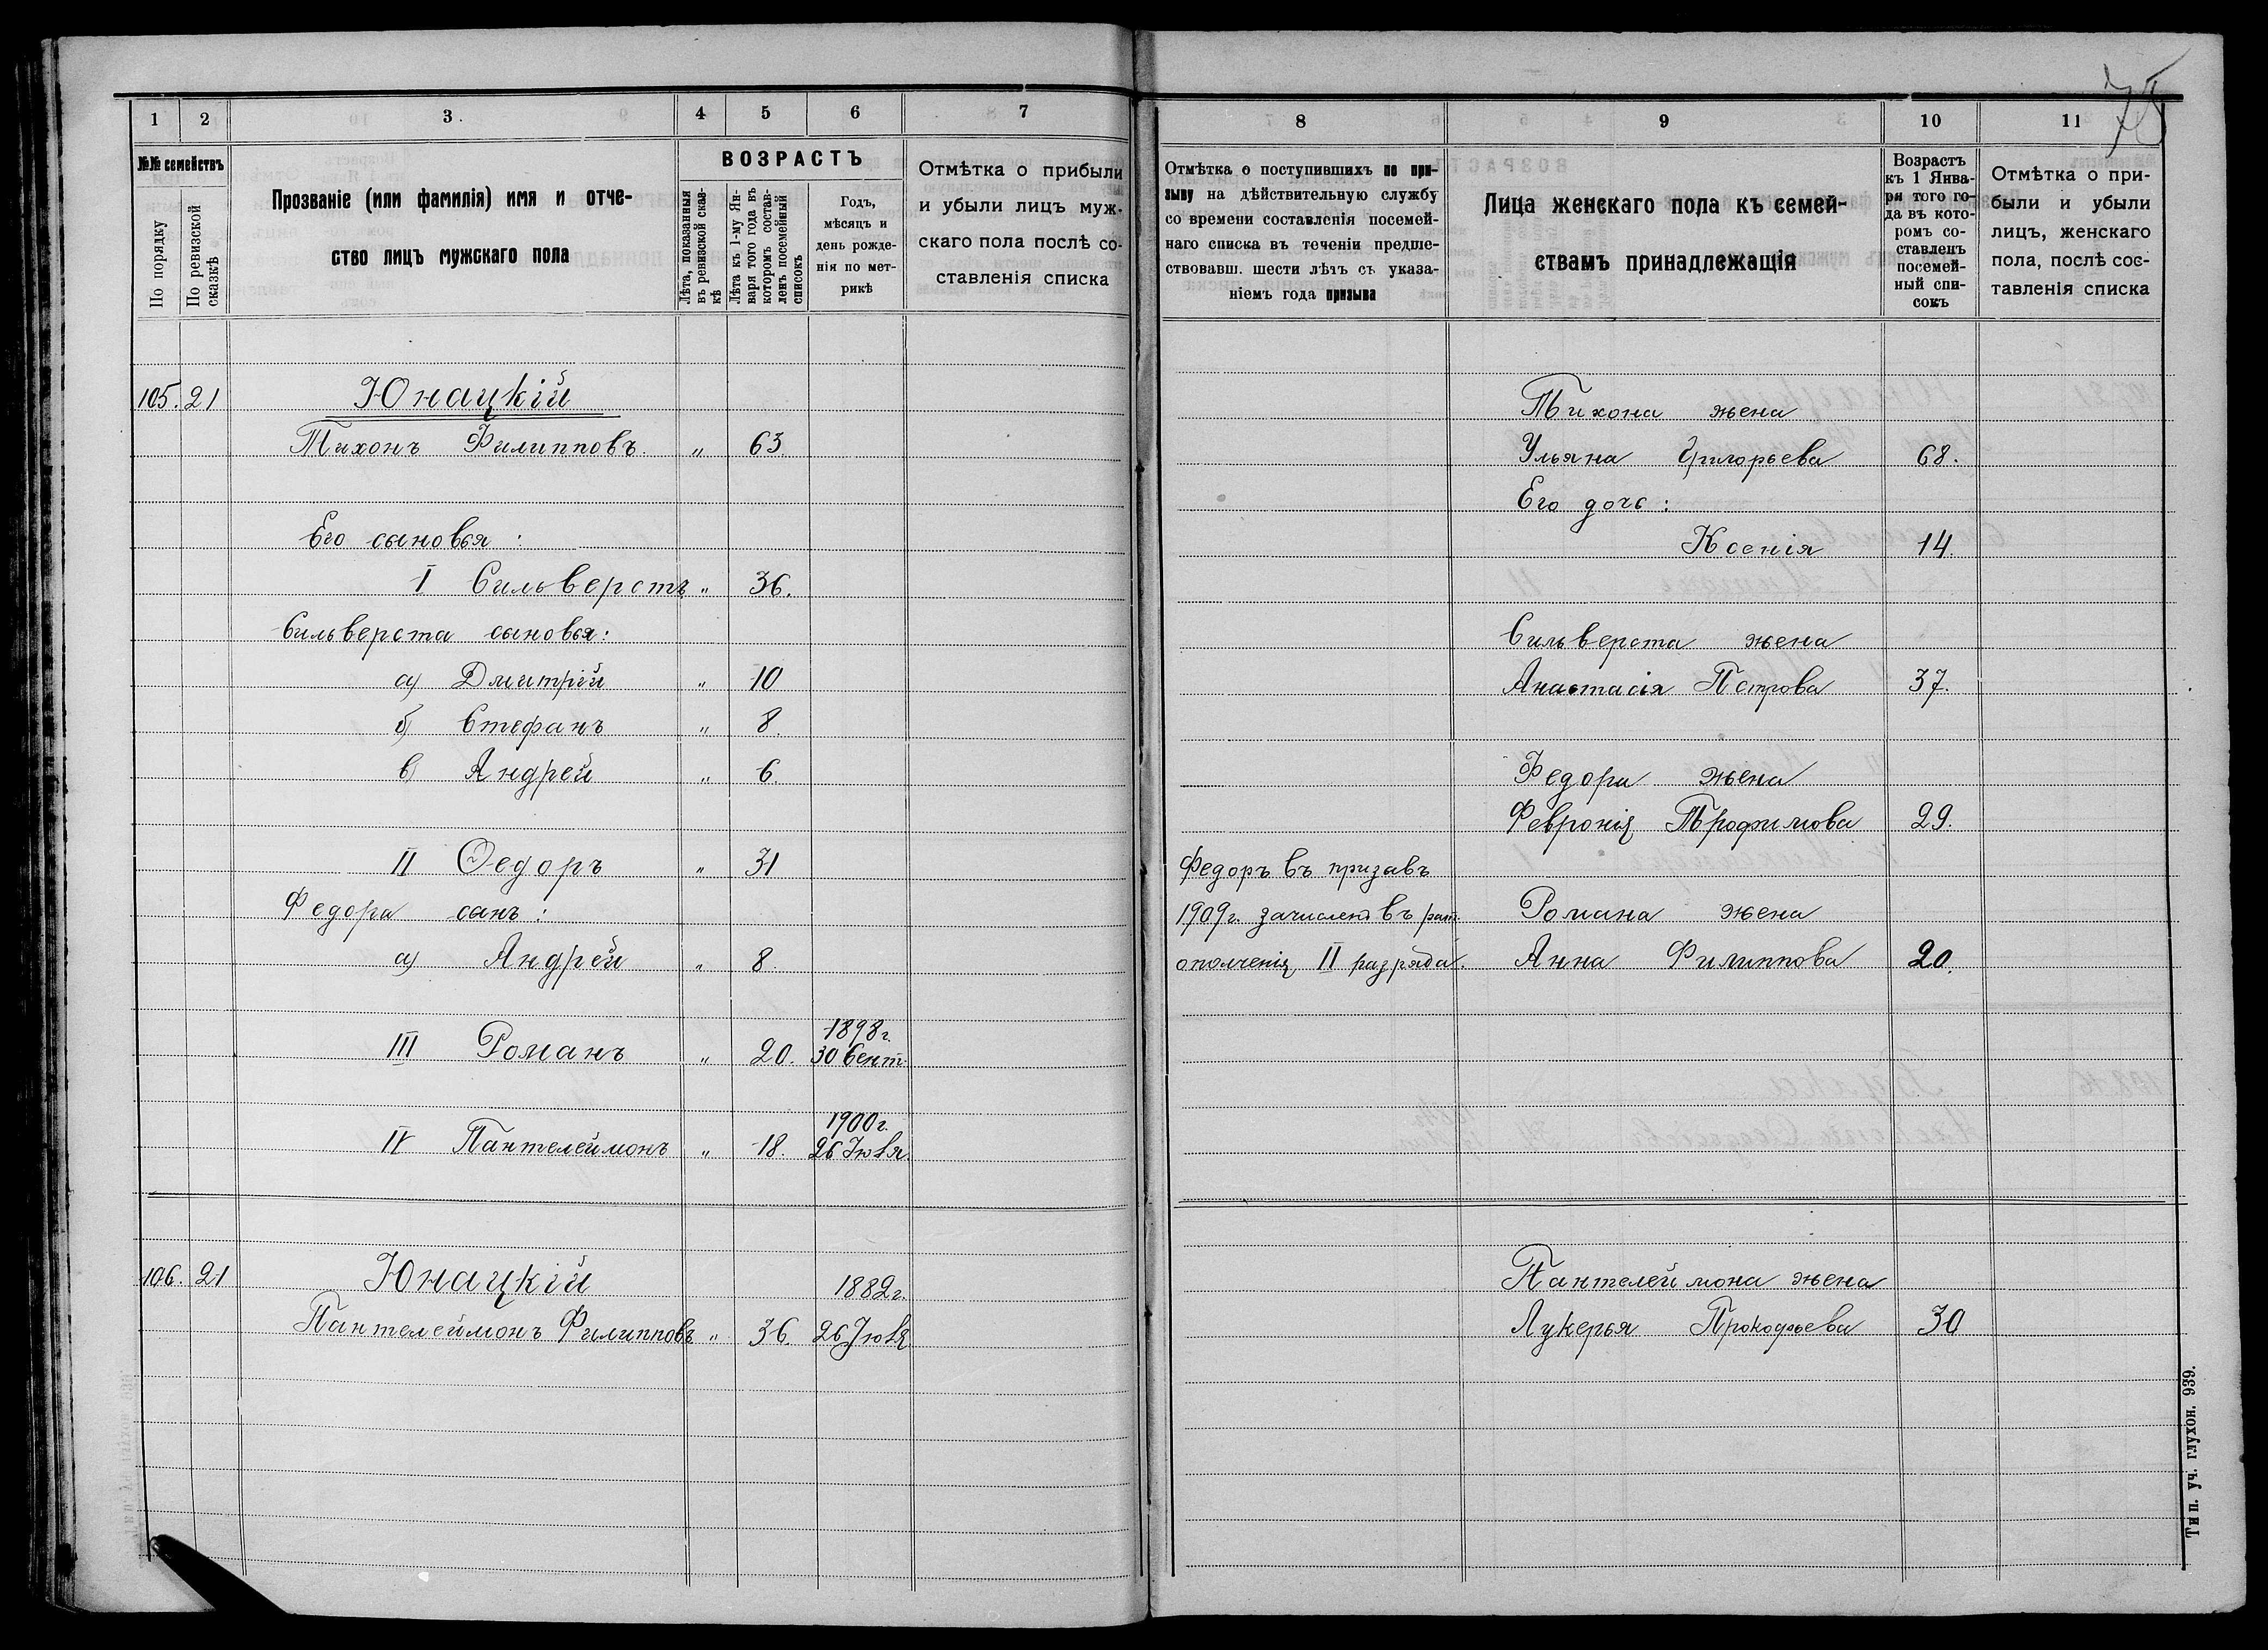 1 2 3. 4 5 6 7
№№ семействъ
По порядку
По ревизской сказкѣ
Прозваніе (или фамилія) имя и отче-
ство лицъ мужскаго пола
ВОЗРАСТЪ
Лѣта, показанныя
въ ревизской сказ-
кѣ
Лѣта къ 1-му Ян-
варя того года въ
которомъ состав-
ленъ посемейный
списокъ
Годъ,
мѣсяцъ и
день рожде-
нія по мет-
рикѣ
Отмѣтка о прибыли
и убыли лицъ муж-
скаго пола послѣ со-
ставленія списка
105. 21 Юнацкій
Тихонъ Филипповъ. „ 63
Его сыновья :
I Сильверстъ „ 36.
Сильверста сыновья:
а) Дмитрій „ 10
б) Стефанъ „ 8.
в) Андрей „ 6.
II Ѳедоръ „ 31
Федора сынъ :
а) Андрей „ 8.
1898г.
III Романъ „ 20. 30 Сент.
1900г.
IV Пантелеймонъ „ 18. 26 Іюля.
106. 21 Юнацкій 1882г.
Пантелеймонъ Филипповъ „ 36. 26 Іюля
8 9 10 11
Отмѣтка о поступившихъ по при-
зыву на дѣйствительную службу
со времени составленія посемей-
наго списка въ теченіи предше-
ствовавш. шести лѣтъ съ указа-
ніемъ года призыва
Лица женскаго пола къ семей-
ствамъ принадлежащія
Возрастъ
къ 1 Янва-
ря того го-
да въ кото-
ромъ со-
ставленъ
посемей-
ный спи-
сокъ
Отмѣтка о при-
были и убыли
лицъ, женскаго
пола, послѣ сос-
тавленія списка
Тихона жена
Ульяна Григорьева 68.
Его дочь :
Ксенія 14.
Сильверста жена
Анастасія Петрова 37.
Федора жена
Февронія Трофимова 29.
Федоръ въ призывъ
1909г. зачисленъ въ рат. Романа жена
ополченія II разряда. Анна Филиппова 20.
Пантелеймона жена
Лукерья Прокофьева 30
Тип. уч. глухон. 939.